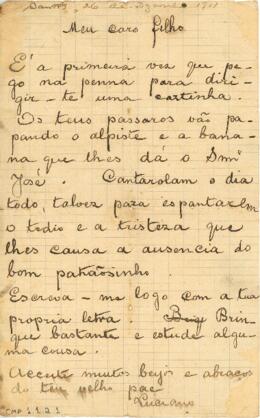 Santos, 26 de 1911
Meu caro filho
É a primeira vez que pe-
go na penna para diri-
gir-te uma cartinha.
Os teus passaros vão pa-
pando o alpiste e a bana-
na que lhes dá o Snr
José. Cantarolam o dia
todo, talvez para espantarem
o tedio e a tristeza que
lhes causa a ausencia do
bom patrãosinho.
Escreva-me logo com a tua
propria letra. Brin
que bastante e estude algu-
ma cousa.
Acceite muitos beijos e abraços
do teu velho pae
Luciano
CMP 1.1.2.1